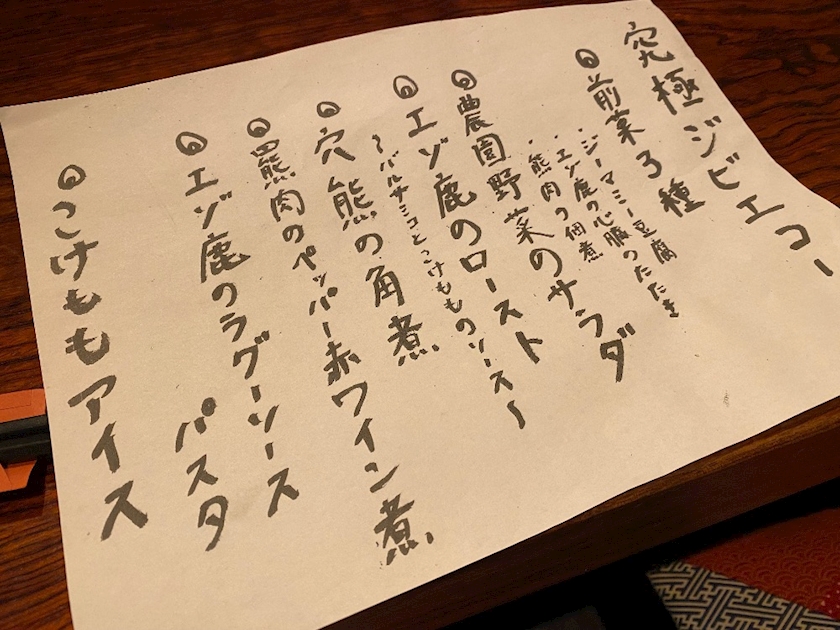 究極ジビエコー
◎前菜3種
・ジーマミー豆腐
・エゾ鹿の心臓のたたき
・熊肉の佃煮
◎農園野菜のサラダ
◎エゾ鹿のロースト
〜バルサミコとこけもものソース〜
◎穴熊の角煮
◎羆熊肉のペッパー赤ワイン煮
◎エゾ鹿のラグーソース
パスタ
◎こけももアイス